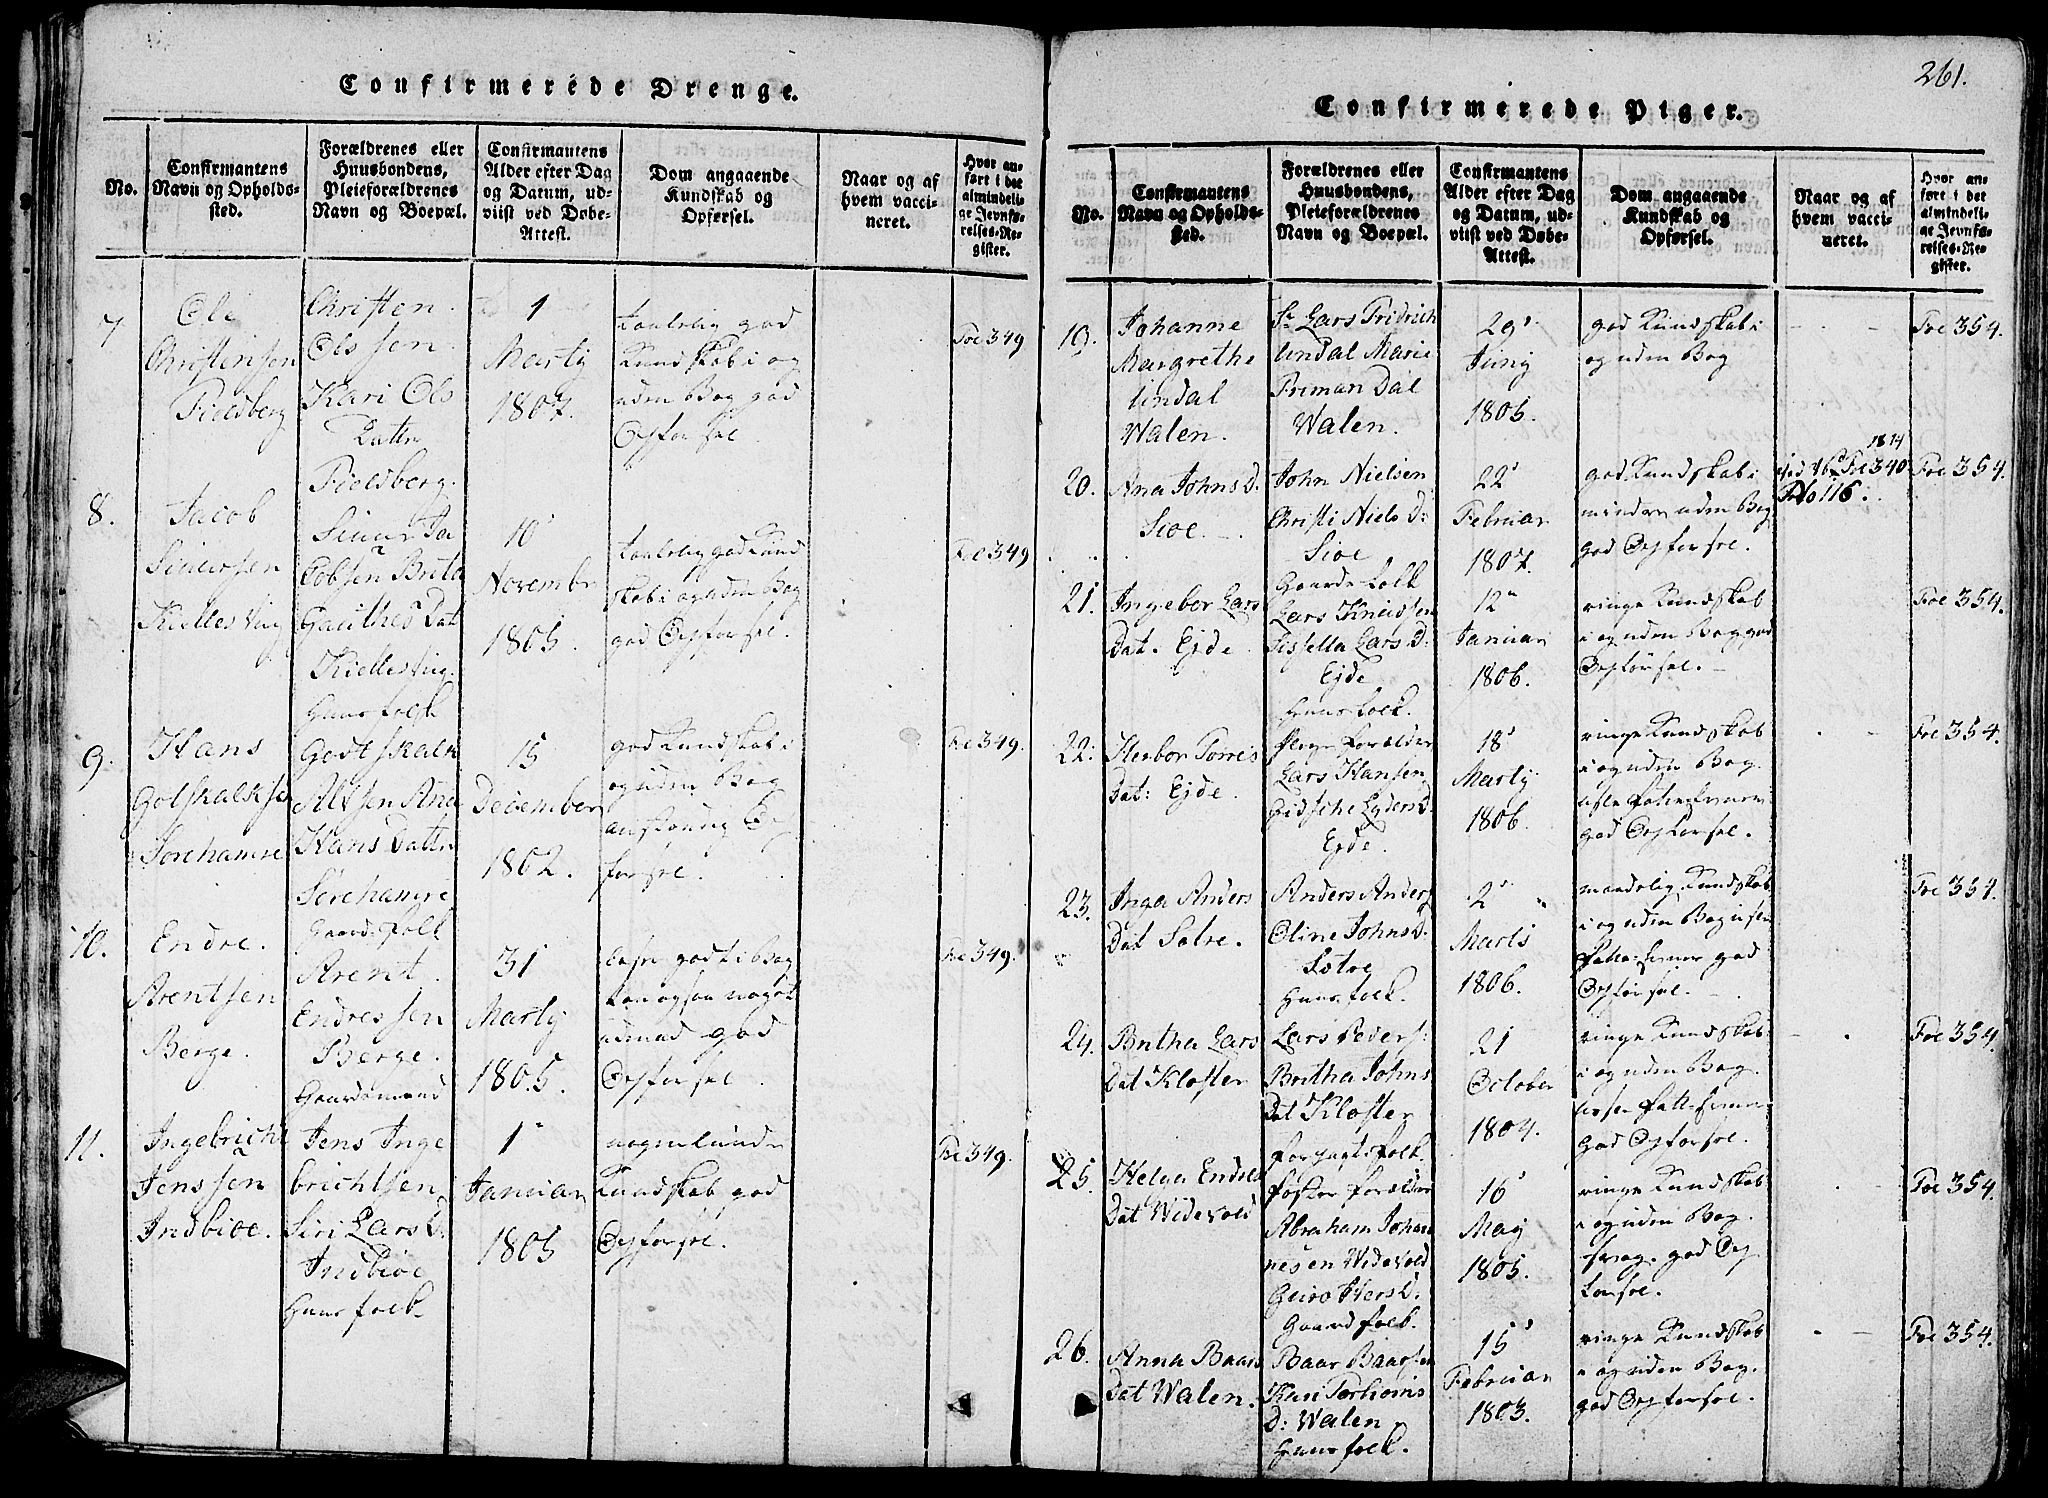 261.
Confirmerede Drenge.
No.
Confirmantens Navn og Opholdssted.
Forældrenes eller Huusbondens, Pleieforældrenes Navn og Boepæl.
Confirmantens Alder efter Dag og Datum, udviist ved Døbe-Attest.
Dom angaaende Kundskab og Opførsel.
Naar og af hvem vaccineret.
Hvor anført i det almindelige Jevnførelses-Register.
7
Ole
Christensen
Fieldberg
Christen
Olssen
Kari Ols
Datter
Fieldsberg.
1
Marty
1807.
taalelig god
Kundskab i og
uden Bog god
Opførsel
Foe 349
8.
Jacob
Siuersen
Kielles Vig
Siuer Ja
cobsen Brita
Gauthes Dat
Kielles vig.
Huusfolk
10
November
1805.
taalelig god Kund
skab i og uden Bog
god Opførsel.
Foe 349
9.
Hans
Gotskalksen
Sørehamre
Godtskalk
Altsen Ana
Hans Datter
Sørehamre
Gaardsfolk
15
December
1802.
god Kundskab i
og uden Bog
anstændig Op
førsel.
Foe 349.
10.
Endre.
Arentsen
Berge.
Arent.
Endressen
Berge.
Gaardsmand
31
Marty
1805.
læser godt i Bog
kan ogsaa noget
udenad god
Opførsel.
Foe 349.
11.
Ingebricht
Jenssen
Indbiøe.
Jens Inge
brichtsen
Siri Lars D:
Indbiøe
Huusfolk
1
Januar
1805
nogenlunde
Kundskab god
Opførsel.
Foe 349.
Confirmerede Piger.
No.
Confirmantens Navn og Opholdssted.
Forældrenes eller Huusbondens, Pleieforældrenes Navn og Boepæl.
Confirmantens Alder efter Dag og Datum, udviist ved Døbe-Attest.
Dom angaaende Kundskab og Opførsel.
Naar og af hvem vaccineret.
Hvor anført i det almindelige Jevnførelses-Register.
19.
Johanne
Margrethe
Undal
Walen.
Sr. Lars Fridrich
Undal Marie
Friman Dal
Walen.
29
Juny
1805.
god Kundskab i
og uden Bog
Foe 354.
20.
Ana Johns D.
Sioe
John Nielsen
Christi Niels D:
Sioe
Gaardsfolk
22
Februar
1807.
god Kundskab i
mindre uden Bog
god Opførsel.
1814
Foe 340
No 116.
Foe 354.
21.
Ingebor Lars
Dat. Ejde
Lars Knudsen
Sissella Lars D:
Ejde
Huusfolk.
12
Januar
1806.
ringe Kundskab
i og uden Bog god
Opførsel.
Foe 354.
22.
Herbor Torres
Dat: Ejde.
Pleye forælder
Lars Hansen
Ejde.
18
Marty
1806.
ringe Kundskab
i og uden Bog.
god Opførsel.
Foe 354.
23.
Inga Anders
Dat Sætre.
Anders Anders
Oline Johns D:
Sætre
Huusfolk.
2
Marts
1806.
maadelig Kundskab
i og uden Bog
god
Opførsel.
Foe 354.
24.
Britha Lars
Dat Kloster
Lars Peders:
Britha Johns
Dat Kloster
forpagtsfolk.
21
October
1804.
ringe Kundskab
i og uden Bog.
god Opførsel.
Foe 354.
25.
Helga Endres
Dat Widevold
foster forælder
Abraham Johan
nesen Widevold
Guro Ivers D:
Gaardfolk.
16
May
1805.
ringe Kundskab
i og uden Bog.
god Op
førsel.
Foe 354.
26.
Anna Baars
Dat Walen.
Baar Baarsen
Kari Torbiørns
D: Walen
Huusfolk.
15
Februar
1803.
ringe Kundskab
i og uden Bog.
god Opførsel.
Foe 354.